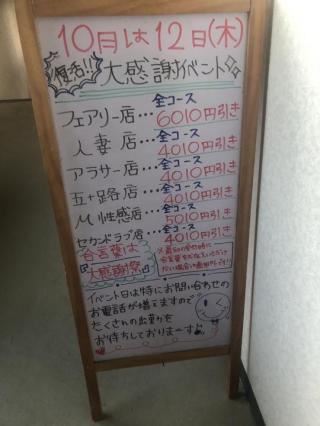 10月は12日(木)
復活!!
大感謝イベント
フェアリー店…全コース6010円引き
人妻店…全コース4010円引き
アラサー店…全コース4010円引き
五十路店…全コース4010円引き
M性感店…全コース5010円引き
セカンドラブ店…全コース4010円引き
合言葉は
『大感謝祭』
イベント日は特にお問い合わせの
お電話が増えますので
たくさんの出勤を
お待ちしておりまーす